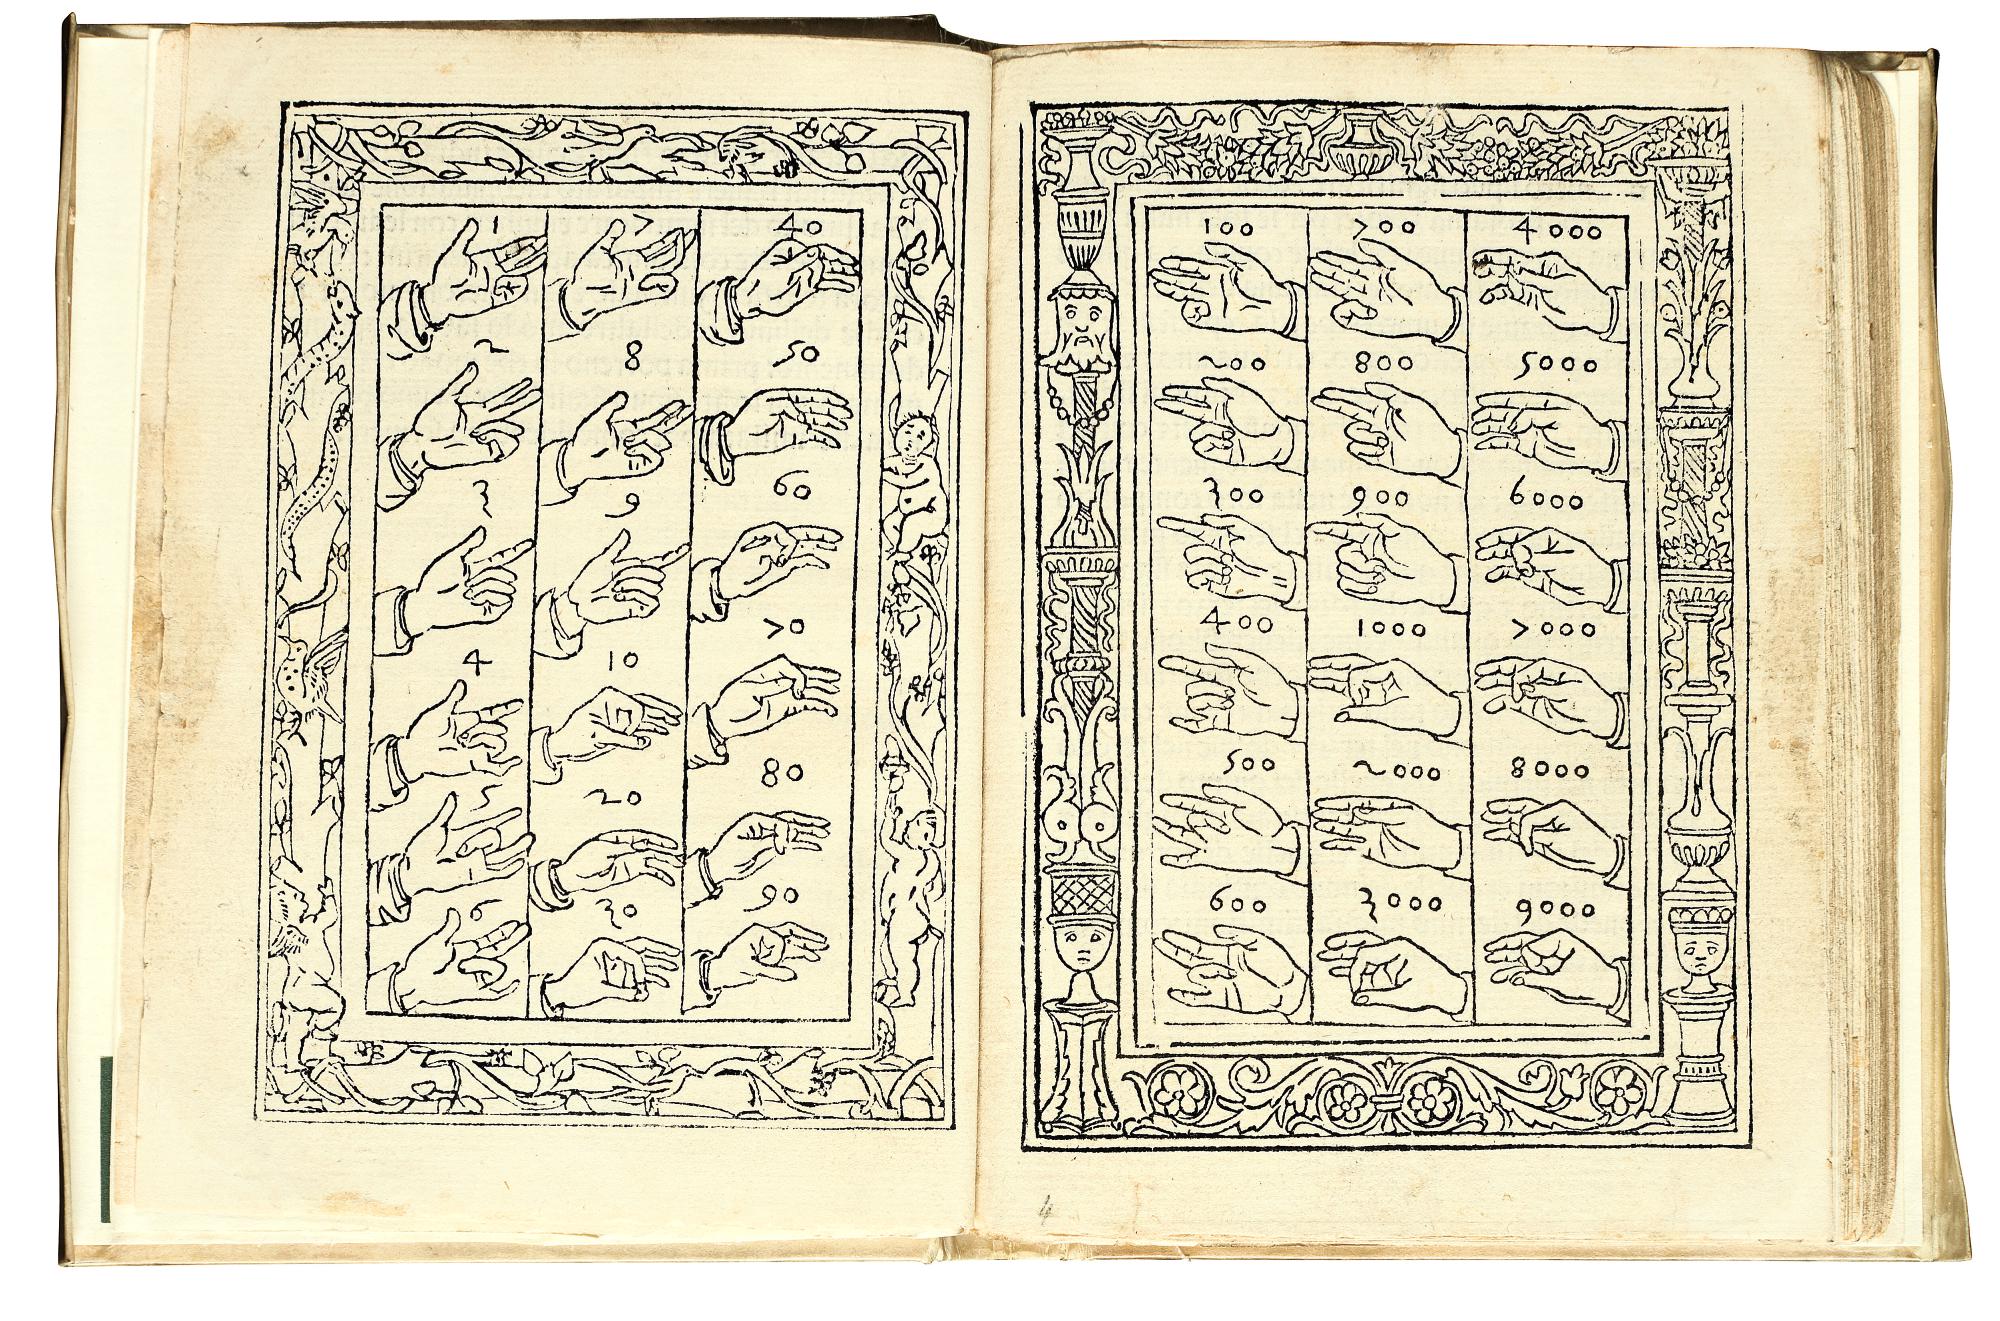 1 7 40
2 8 50
3 9 60
4 10 70
5 20 80
6 30 90
100 700 4000
200 800 5000
300 900 6000
400 1000 7000
500 2000 8000
600 3000 9000
4